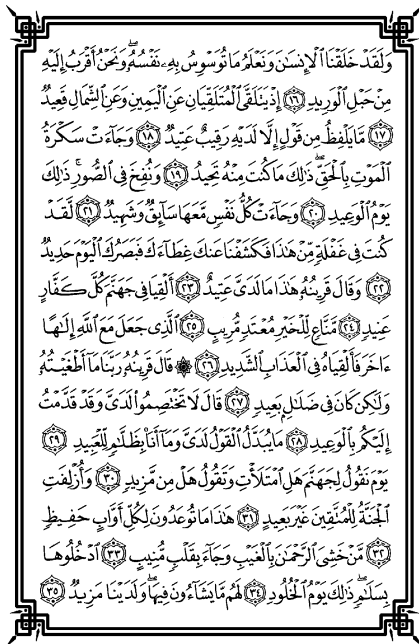 وَلَقَدْ خَلَقْنَا ٱلْإِنسَٰنَ وَنَعْلَمُ مَا تُوَسْوِسُ بِهِۦ نَفْسُهُۥ ۖ وَنَحْنُ أَقْرَبُ إِلَيْهِ
مِنْ حَبْلِ ٱلْوَرِيدِ ١٦ إِذْ يَتَلَقَّى ٱلْمُتَلَقِّيَانِ عَنِ ٱلْيَمِينِ وَعَنِ ٱلشِّمَالِ قَعِيدٌ
١٧ مَّا يَلْفِظُ مِن قَوْلٍ إِلَّا لَدَيْهِ رَقِيبٌ عَتِيدٌ ١٨ وَجَآءَتْ سَكْرَةُ
ٱلْمَوْتِ بِٱلْحَقِّ ۖ ذَٰلِكَ مَا كُنتَ مِنْهُ تَحِيدُ ١٩ وَنُفِخَ فِى ٱلصُّورِ ۚ ذَٰلِكَ
يَوْمُ ٱلْوَعِيدِ ٢٠ وَجَآءَتْ كُلُّ نَفْسٍ مَّعَهَا سَآئِقٌ وَشَهِيدٌ ٢١ لَّقَدْ
كُنتَ فِى غَفْلَةٍ مِّنْ هَٰذَا فَكَشَفْنَا عَنكَ غِطَآءَكَ فَبَصَرُكَ ٱلْيَوْمَ حَدِيدٌ
٢٢ وَقَالَ قَرِينُهُۥ هَٰذَا مَا لَدَىَّ عَتِيدٌ ٢٣ أَلْقِيَا فِى جَهَنَّمَ كُلَّ كَفَّارٍ
عَنِيدٍ ٢٤ مَّنَّاعٍ لِّلْخَيْرِ مُعْتَدٍ مُّرِيبٍ ٢٥ ٱلَّذِى جَعَلَ مَعَ ٱللَّهِ إِلَٰهًا
ءَاخَرَ فَأَلْقِيَاهُ فِى ٱلْعَذَابِ ٱلشَّدِيدِ ٢٦ ۞ قَالَ قَرِينُهُۥ رَبَّنَا مَآ أَطْغَيْتُهُۥ
وَلَٰكِن كَانَ فِى ضَلَٰلٍۭ بَعِيدٍ ٢٧ قَالَ لَا تَخْتَصِمُوا۟ لَدَىَّ وَقَدْ قَدَّمْتُ
إِلَيْكُم بِٱلْوَعِيدِ ٢٨ مَا يُبَدَّلُ ٱلْقَوْلُ لَدَىَّ وَمَآ أَنَا۠ بِظَلَّٰمٍ لِّلْعَبِيدِ ٢٩
يَوْمَ نَقُولُ لِجَهَنَّمَ هَلِ ٱمْتَلَأْتِ وَتَقُولُ هَلْ مِن مَّزِيدٍ ٣٠ وَأُزْلِفَتِ
ٱلْجَنَّةُ لِلْمُتَّقِينَ غَيْرَ بَعِيدٍ ٣١ هَٰذَا مَا تُوعَدُونَ لِكُلِّ أَوَّابٍ حَفِيظٍ
٣٢ مَّنْ خَشِىَ ٱلرَّحْمَٰنَ بِٱلْغَيْبِ وَجَآءَ بِقَلْبٍ مُّنِيبٍ ٣٣ ٱدْخُلُوهَا
بِسَلَٰمٍ ۖ ذَٰلِكَ يَوْمُ ٱلْخُلُودِ ٣٤ لَهُم مَّا يَشَآءُونَ فِيهَا ۖ وَلَدَيْنَا مَزِيدٌ ٣٥